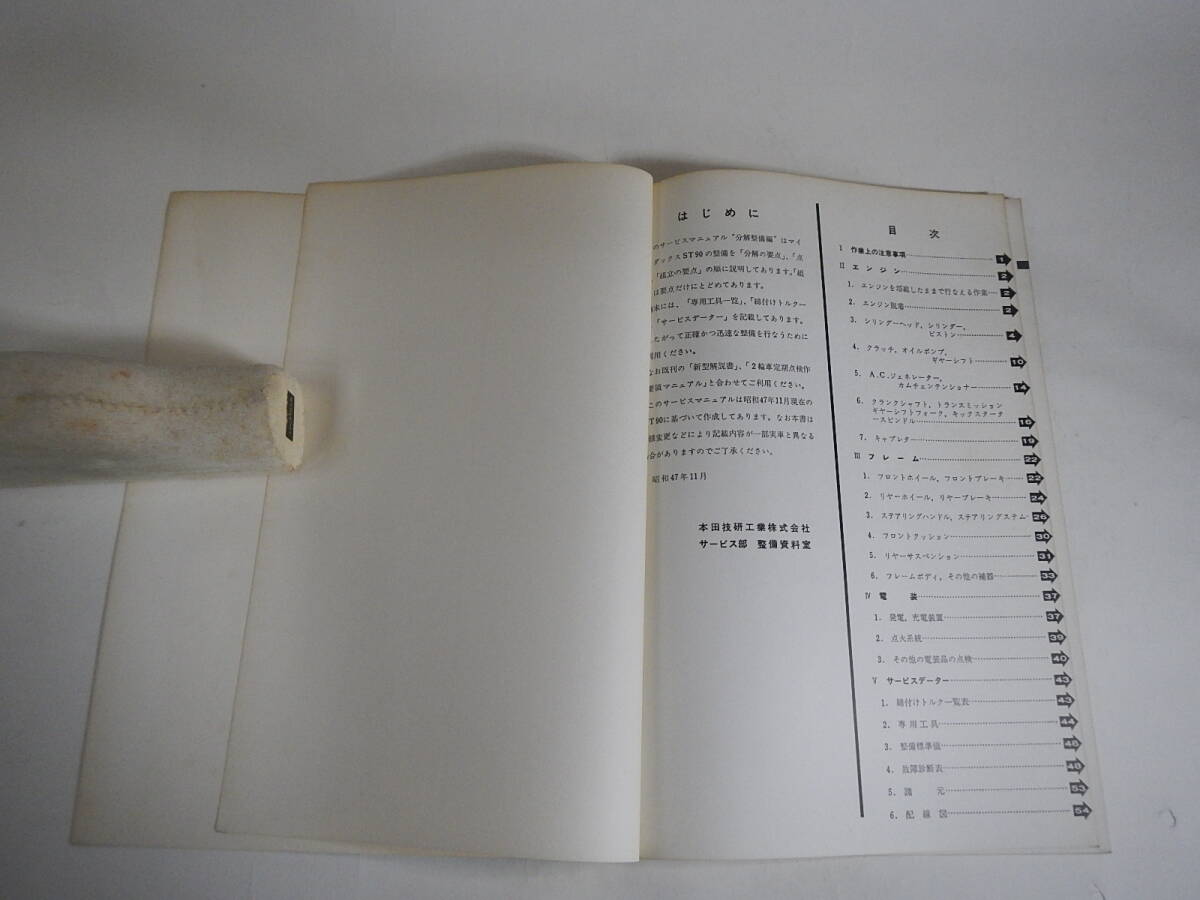 はじめに
のサービスマニュアル“分解整備編”はマイ
ダックスST90の整備を「分解の要点」、「点
「組立の要点」の順に説明してあります。「組
は要点だけにとどめてあります。
末には、「専用工具一覧」、「締付けトルク一
「サービスデーター」を記載してあります。
たがって正確かつ迅速な整備を行なうために
用ください。
なお既刊の「新型解説書」、「2輪車定期点検作
要領マニュアル」と合わせてご利用ください。
このサービスマニュアルは昭和47年11月現在の
T90に基づいて作成してあります。なお本書は
変更などにより記載内容が一部実車と異なる
合がありますのでご了承ください。
昭和47年11月
本田技研工業株式会社
サービス部 整備資料室
目次
I 作業上の注意事項 1
II エンジン 2
1. エンジンを搭載したままで行なえる作業 2
2. エンジン脱着
3. シリンダーヘッド, シリンダー,
ピストン 4
4. クラッチ, オイルポンプ,
ギヤーシフト 10
5. A.C.ジェネレーター,
カムチェンテンショナー 14
6. クランクシャフト, トランスミッション
ギヤーシフトフォーク, キックスタータ
ースピンドル
7. キャブレター
III フレーム
1. フロントホイール, フロントブレーキ
2. リヤーホイール, リヤーブレーキ
3. ステアリングハンドル, ステアリングステム
4. フロントクッション
5. リヤーサスペンション
6. フレームボディ, その他の補器
IV 電装 37
1. 発電, 充電装置 37
2. 点火系統
3. その他の電装品の点検 40
V サービスデーター
1. 締付けトルク一覧表
2. 専用工具
3. 整備標準値
4. 故障診断表
5. 諸元
6. 配線図